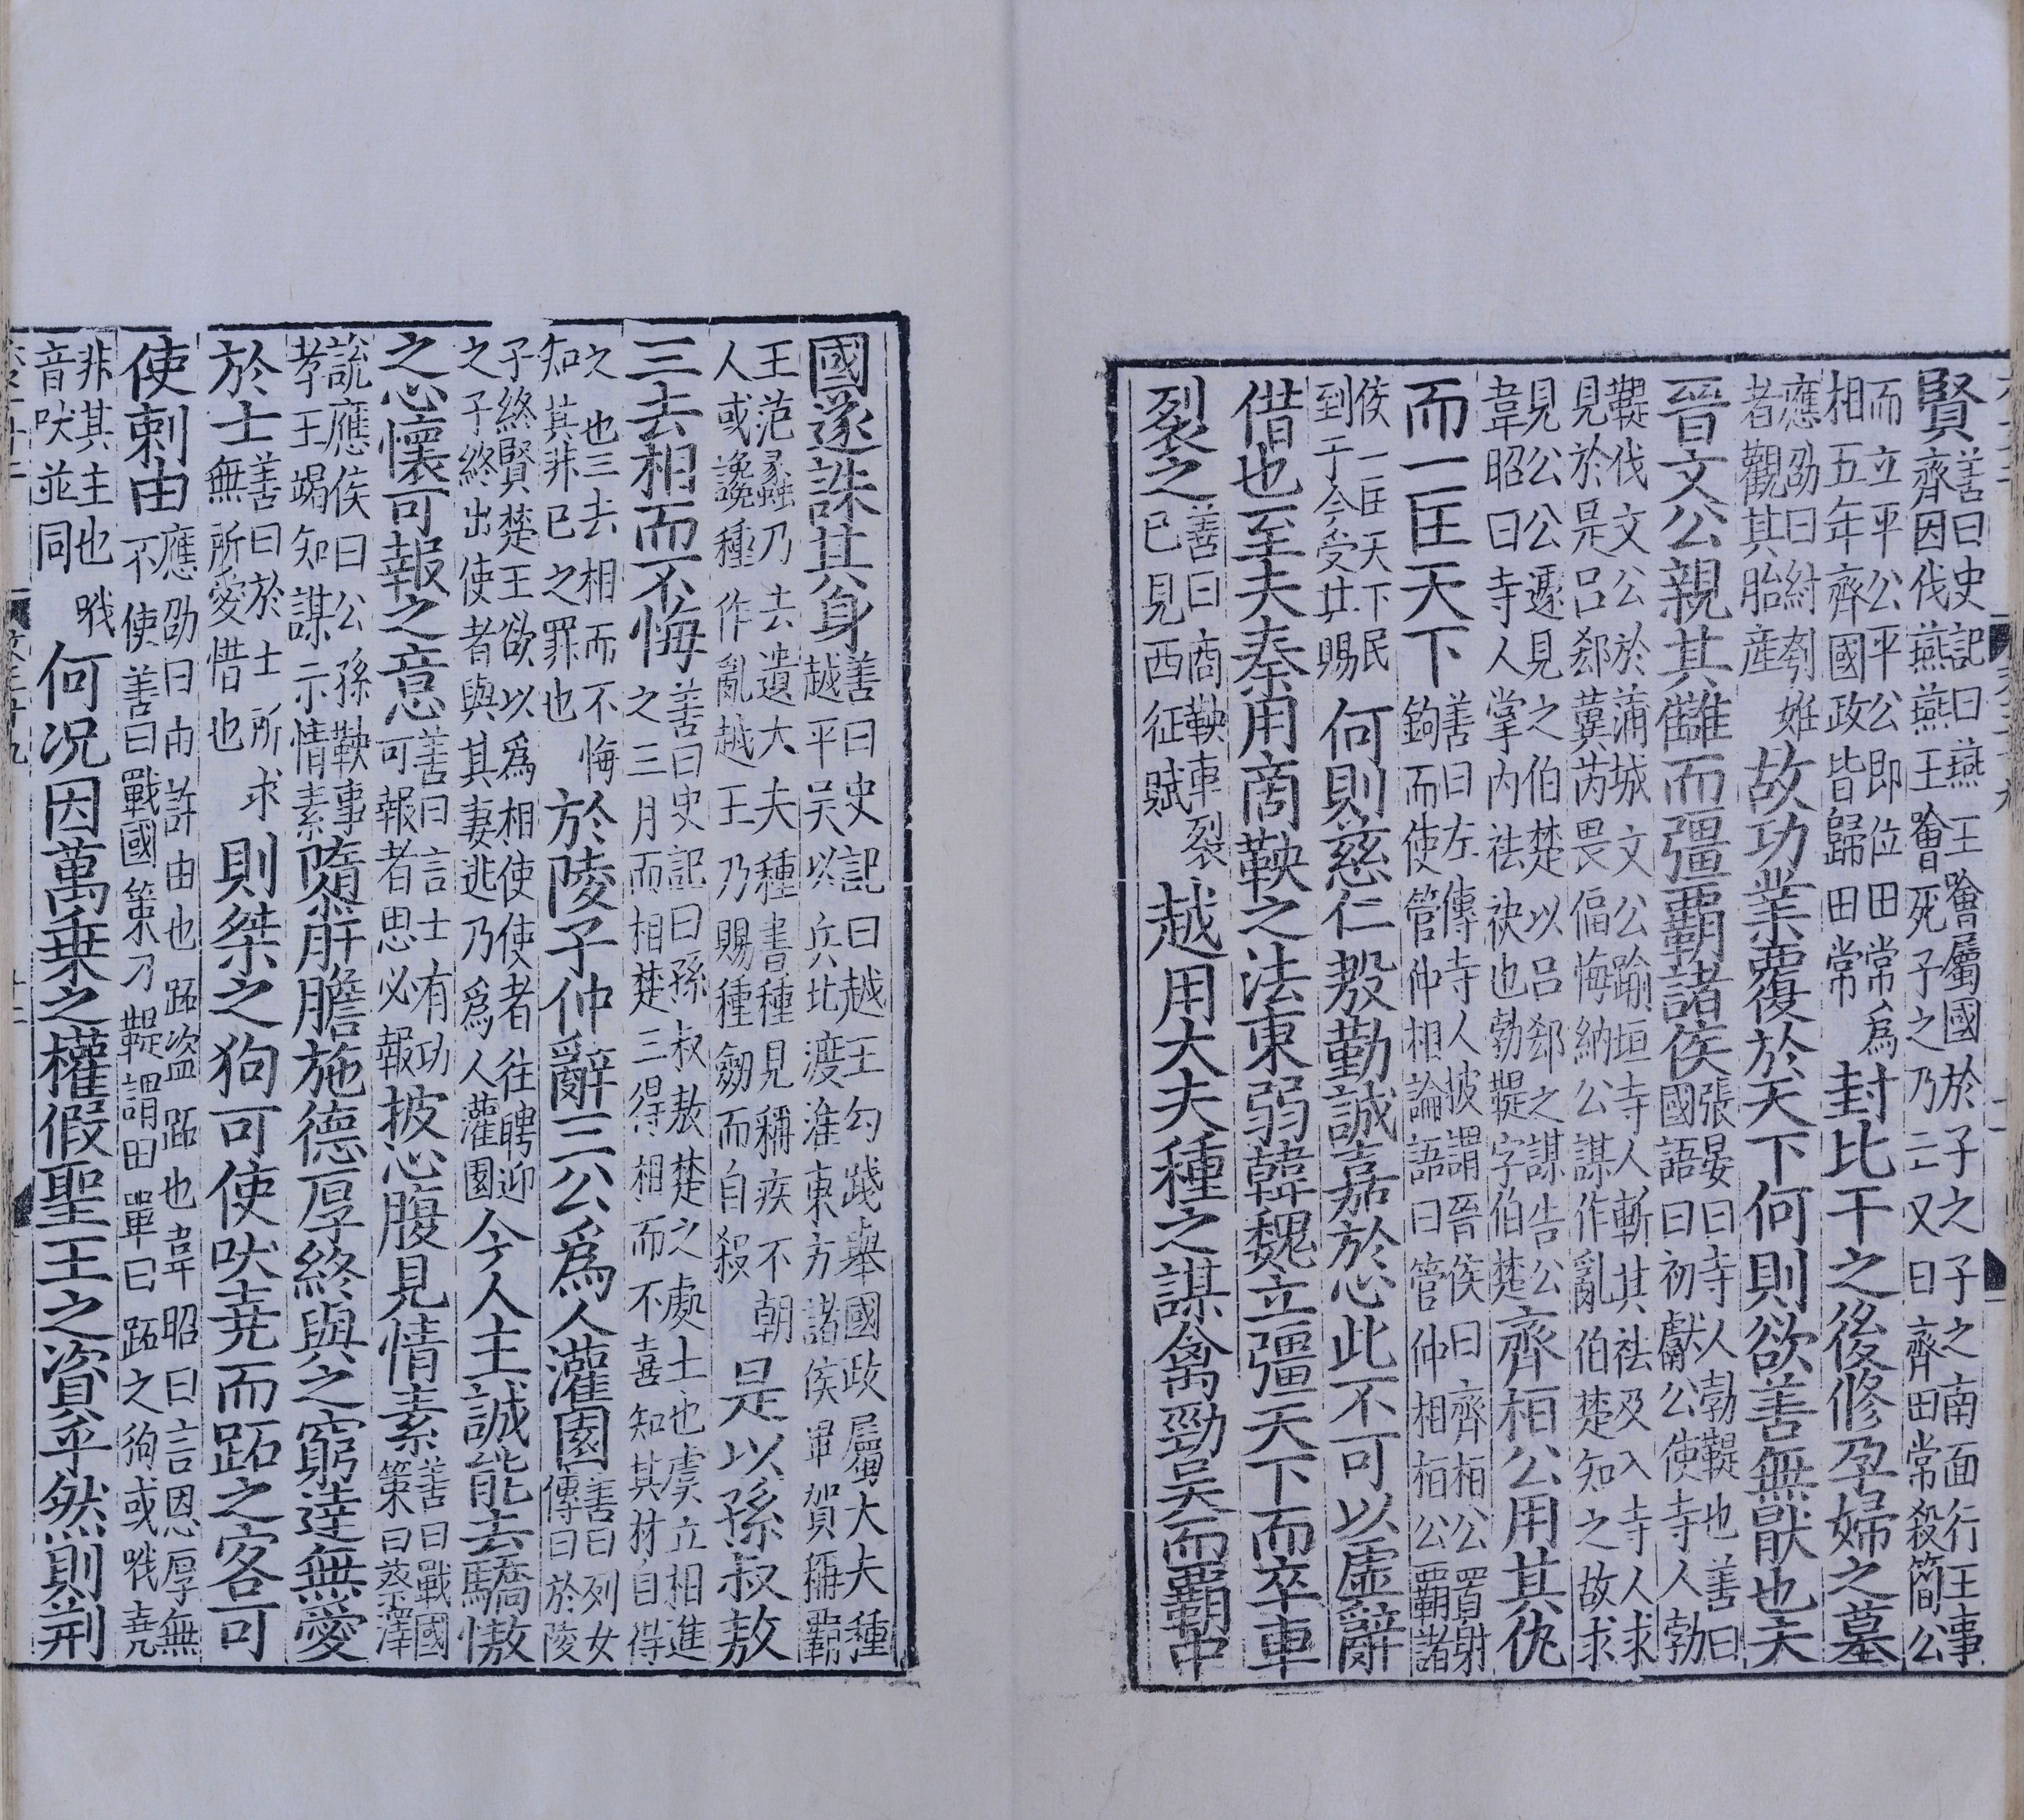 賢善曰史記曰燕王噲屬國於子之子之南面行王事
齊因伐燕燕王噲死子之乃亡又曰齊田常殺簡公
而立平公平公即位田常爲
相五年齊國政皆歸田常
封比干之後修孕婦之墓
應劭曰紂刳姙
者觀其胎産
故功業覆於天下何則欲善無猒也夫
晉文公親其讎而彊霸諸侯張晏曰寺人勃鞮也善曰
國語曰初獻公使寺人勃
鞮伐文公於蒲城文公踰垣寺人斬其袪及入寺人求
見於是呂郄冀芮畏偪悔納公謀作亂伯楚知之故求
見公公遽見之伯楚以呂郄之謀告公
韋昭曰寺人掌内袪袂也勃鞮字伯楚
齊桓公用其仇
而一匡天下善曰左傳寺人披謂晉侯曰齊桓公置射
鉤而使管仲相論語曰管仲相桓公霸諸
侯一匡天下民
到于今受其賜
何則慈仁慇勤誠嘉於心此不可以虛辭
借也至夫秦用商鞅之法東弱韓魏立彊天下而卒車
裂之善曰商鞅車裂
已見西征賦
越用大夫種之謀禽勁吳而霸中
國遂誅其身善曰史記曰越王勾踐舉國政屬大夫種
越平吳以兵北渡淮東方諸侯畢賀稱霸
王范蠡乃去遺大夫種書種見稱疾不朝
人或讒種作亂越王乃賜種劒而自殺
是以孫叔敖
三去相而不悔善曰史記曰孫叔敖楚之處士也虞丘相進
之三月而相楚三得相而不喜知其材自得
之也三去相而不悔
知其非已之罪也
於陵子仲辭三公爲人灌園善曰列女
傳曰於陵
子終賢楚王欲以爲相使使者往聘迎
之子終出使者與其妻逃乃爲人灌園
今人主誠能去驕慠
之心懷可報之意善曰言士有功
可報者思必報
披心腹見情素善曰戰國
策曰蔡澤
說應侯曰公孫鞅事
孝王竭知謀示情素
隳肝膽施德厚終與之窮達無愛
於士善曰於士所求
無所愛惜也
則桀之狗可使吠堯而跖之客可
使刺由應劭曰由許由也跖盜跖也韋昭曰言恩厚無
不使善曰戰國策刁鞮謂田單曰跖之狗或堯
非其主也
音吠並同
何况因萬乗之權假聖王之資乎然則荆